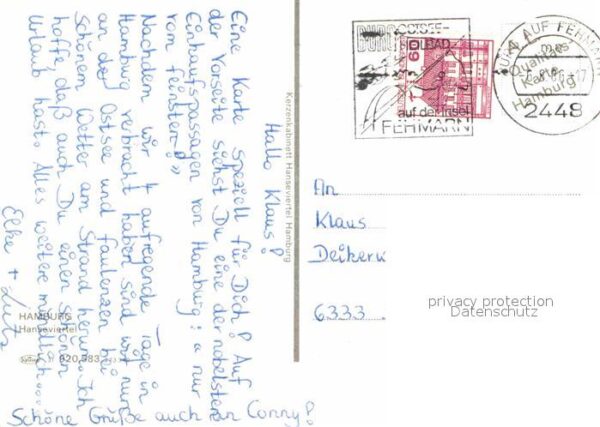 Hallo Klaus!
Eine Karte speziell für Dich! Auf
der Vorseite siehst Du eine der nobelsten
Einkaufspassagen von Hamburg: "nur
vom feinsten!"
Nachdem wir 4 aufregende Tage in
Hamburg verbracht haben sind wir nun
an der Ostsee und faulenzen bei
schönem Wetter am Strand herum. Ich
hoffe, daß auch Du einen schönen
Urlaub hast. Alles weitere mündlich...
Elke + Lutz
Schöne Grüße auch an Conny!
HAMBURG
Hanseviertel
920.583
Kerzenkabinett Hanseviertel Hamburg
BURG OSTSEE-
HEILBAD
auf der Insel
FEHMARN
60
BURG AUF FEHMARN
Qualitäts
Karte
Hamburg
2448
An
Klaus
6333
privacy protection
Datenschutz